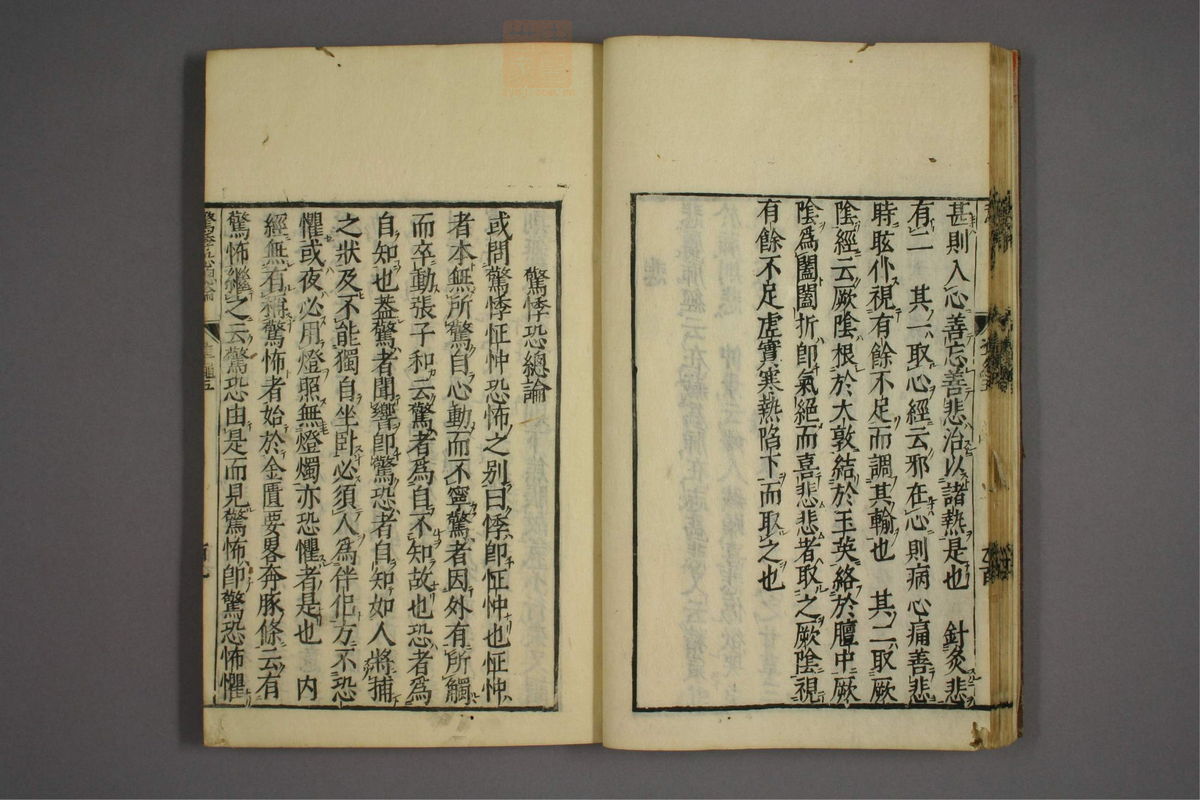 甚則入心善忘善悲治以諸熱是也　針灸悲
有二　其一取心經云邪在心則病心痛善悲
時眩仆視有餘不足而調其輸也　其二取厥
陰經云厥陰根於大敦結於玉英絡於膻中厥
陰爲闔闔折卽氣絕而喜悲悲者取之厥陰視
有餘不足虛實寒熱陷下而取之也
驚悸恐總論
或問驚悸怔忡恐怖之别曰悸卽怔忡也怔忡
者本無所驚自心動而不寧驚者因外有所觸
而卒動張子和云驚者爲自不知故也恐者爲
自知也葢驚者聞響卽驚恐者自知如人將捕
之狀及不能獨自坐臥必須人爲伴侶方不恐
懼或夜必用燈照無燈燭亦恐懼者是也　内
經無有稱驚怖者始於金匱要畧奔豚條云有
驚怖繼之云驚恐由是而見驚怖卽驚恐怖懼